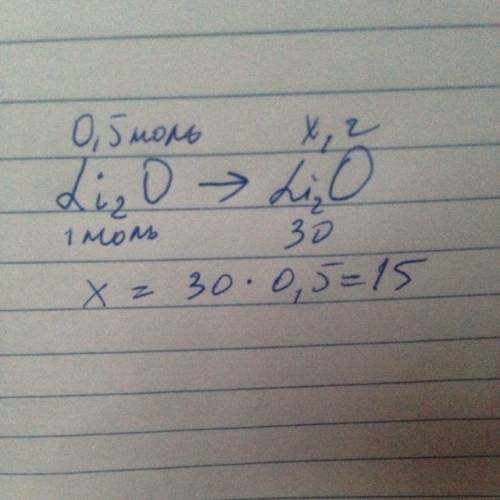 0,5 моль x, г
Li₂O → Li₂O
1 моль 30
x = 30 · 0,5 = 15